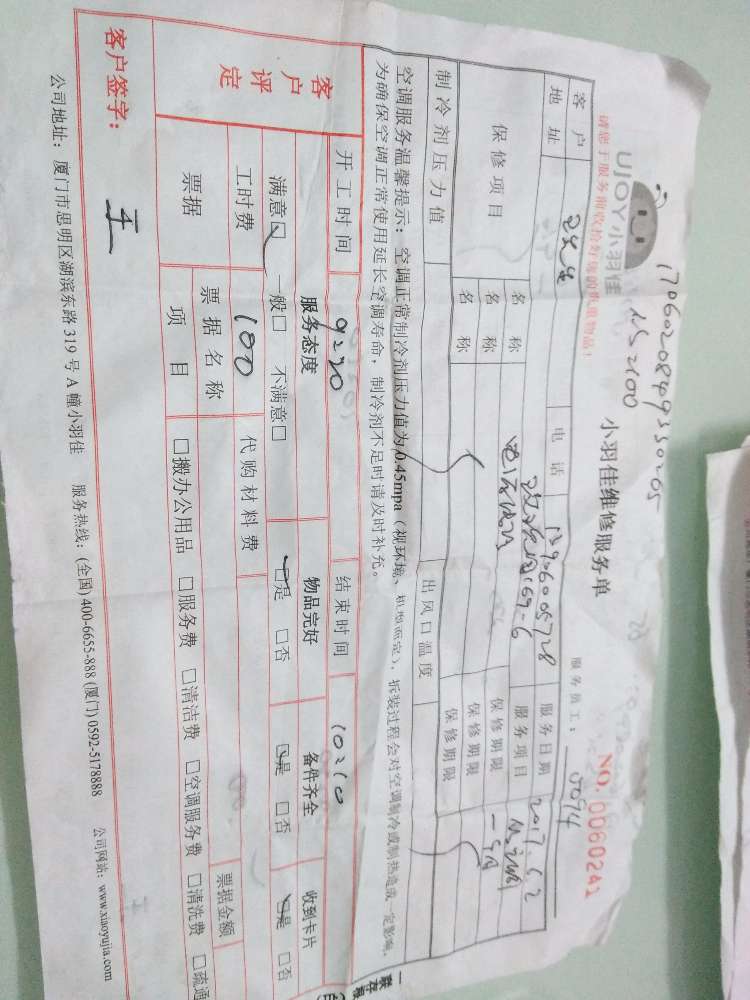 170602084933020S
UJOY小羽佳
小羽佳维修服务单
NO. 0060241
请您于服务前收拾好您的贵重物品！
服务员工：
客户
电话
服务日期 2017.6.2
地址
服务项目
保修项目
名称
保修期限
名称
保修期限
名称
保修期限
制冷剂压力值
出风口温度
空调服务温馨提示：空调正常制冷剂压力值为0.45mpa（视环境、机组而定），拆装过程会对空调制冷或制热造成一定影响，
为确保空调正常使用延长空调寿命，制冷剂不足时请及时补充。
客户评定
开工时间 9:20
结束时间 10:10
服务态度
物品完好
备件齐全
收到卡片
满意□ 一般□ 不满意□
□是 □否
□是 □否
□是 □否
工时费 100
代购材料费
票据
票据名称
票据金额
项目
□搬办公用品 □服务费 □清洁费 □空调服务费 □清洗费 □疏通
客户签字： 王
公司地址：厦门市思明区湖滨东路 319 号 A 幢小羽佳 服务热线：(全国) 400-6655-888 (厦门) 0592-5178888 公司网站：www.xiaoyujia.com